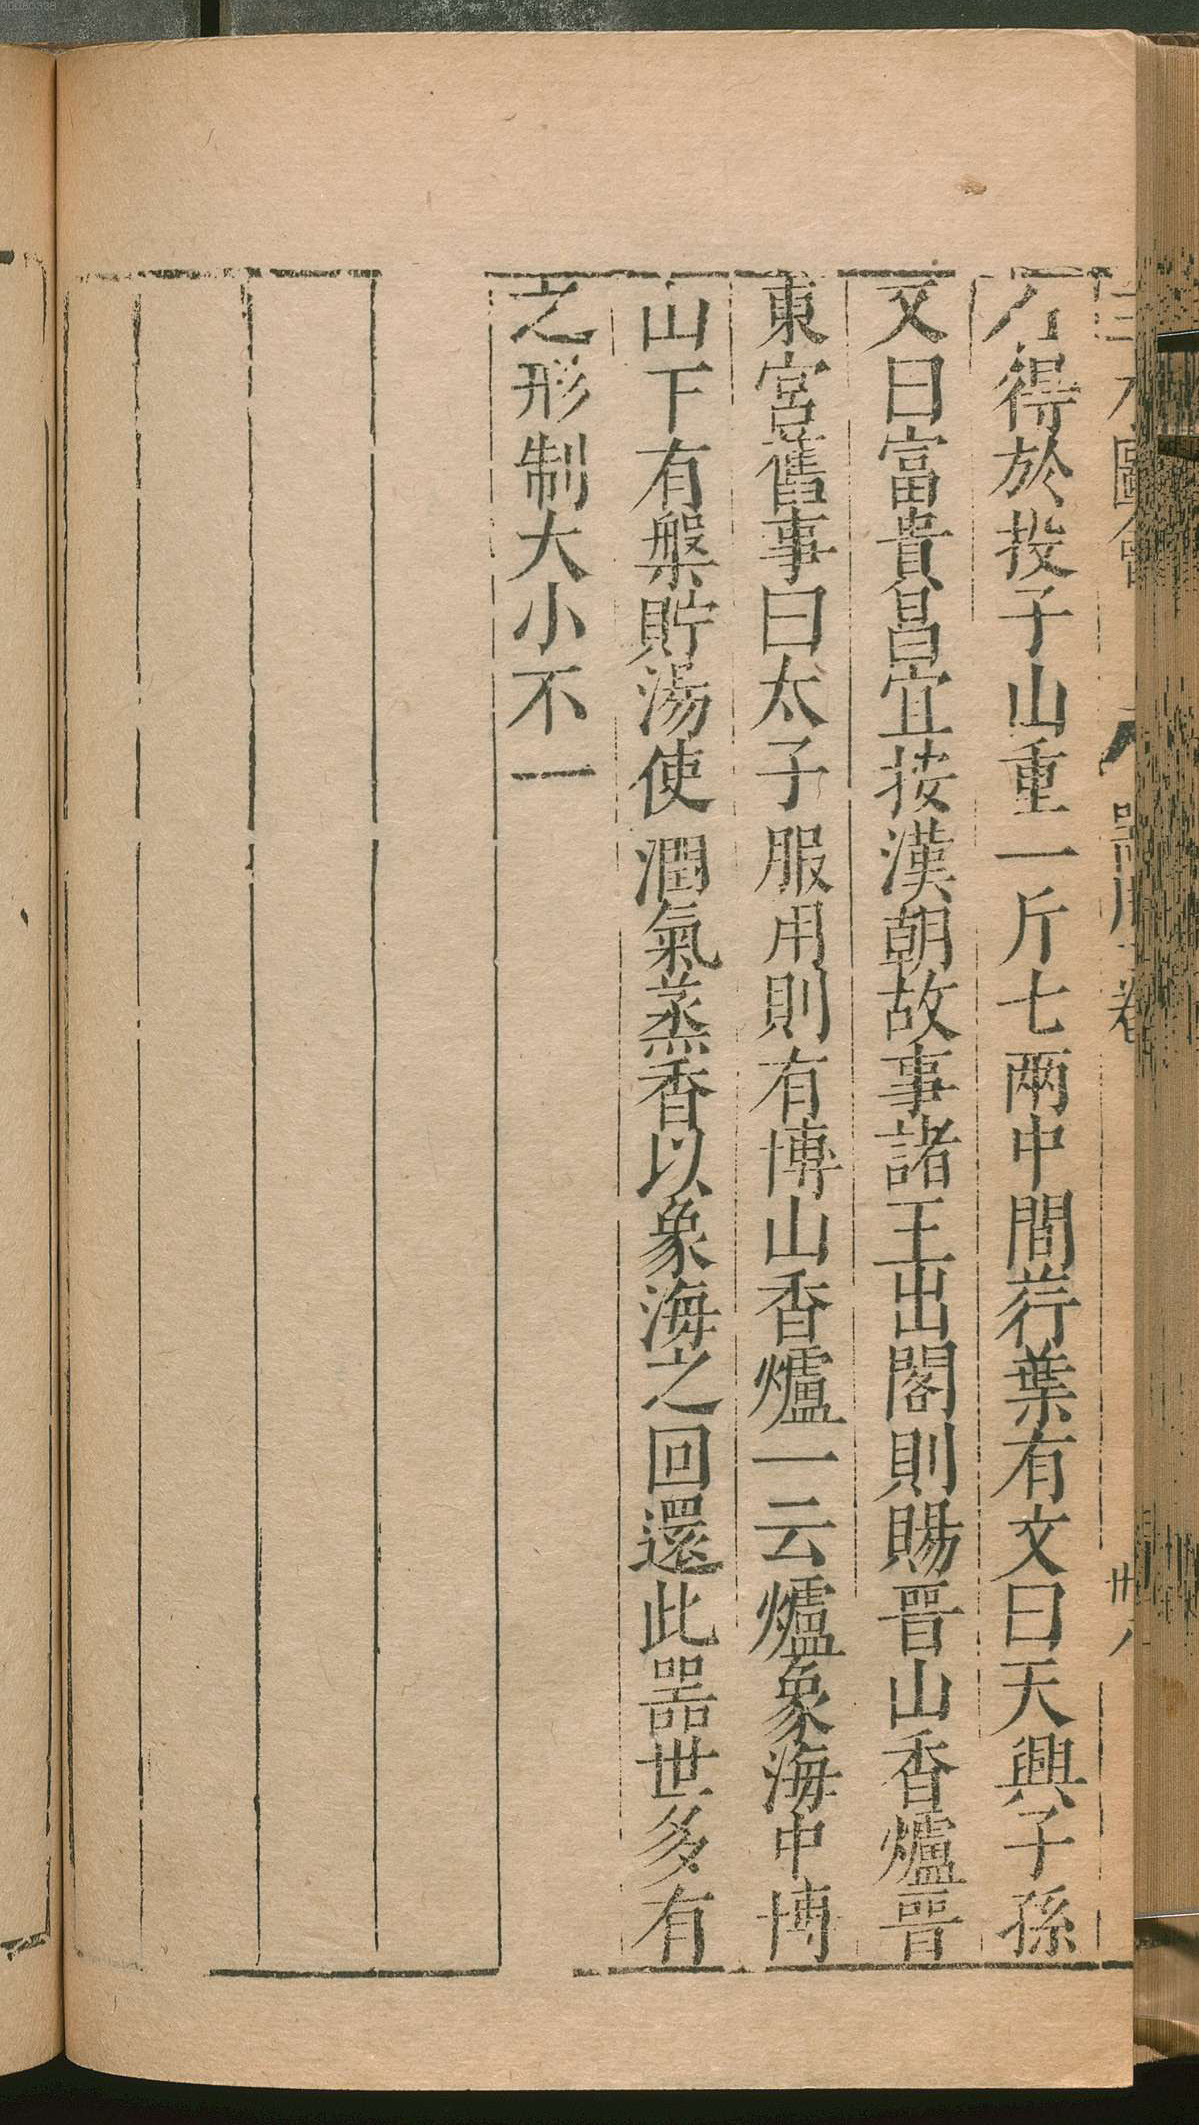 得於投子山重一斤七兩中間荇葉有文曰天興子孫
文曰富貴昌宜按漢朝故事諸王出閣則賜晉山香爐晉
東宮舊事曰太子服用則有博山香爐一云爐象海中博
山下有槃貯湯使潤氣蒸香以象海之回還此噐世多有
之形制大小不一
圖會
卷
卅八
00080338